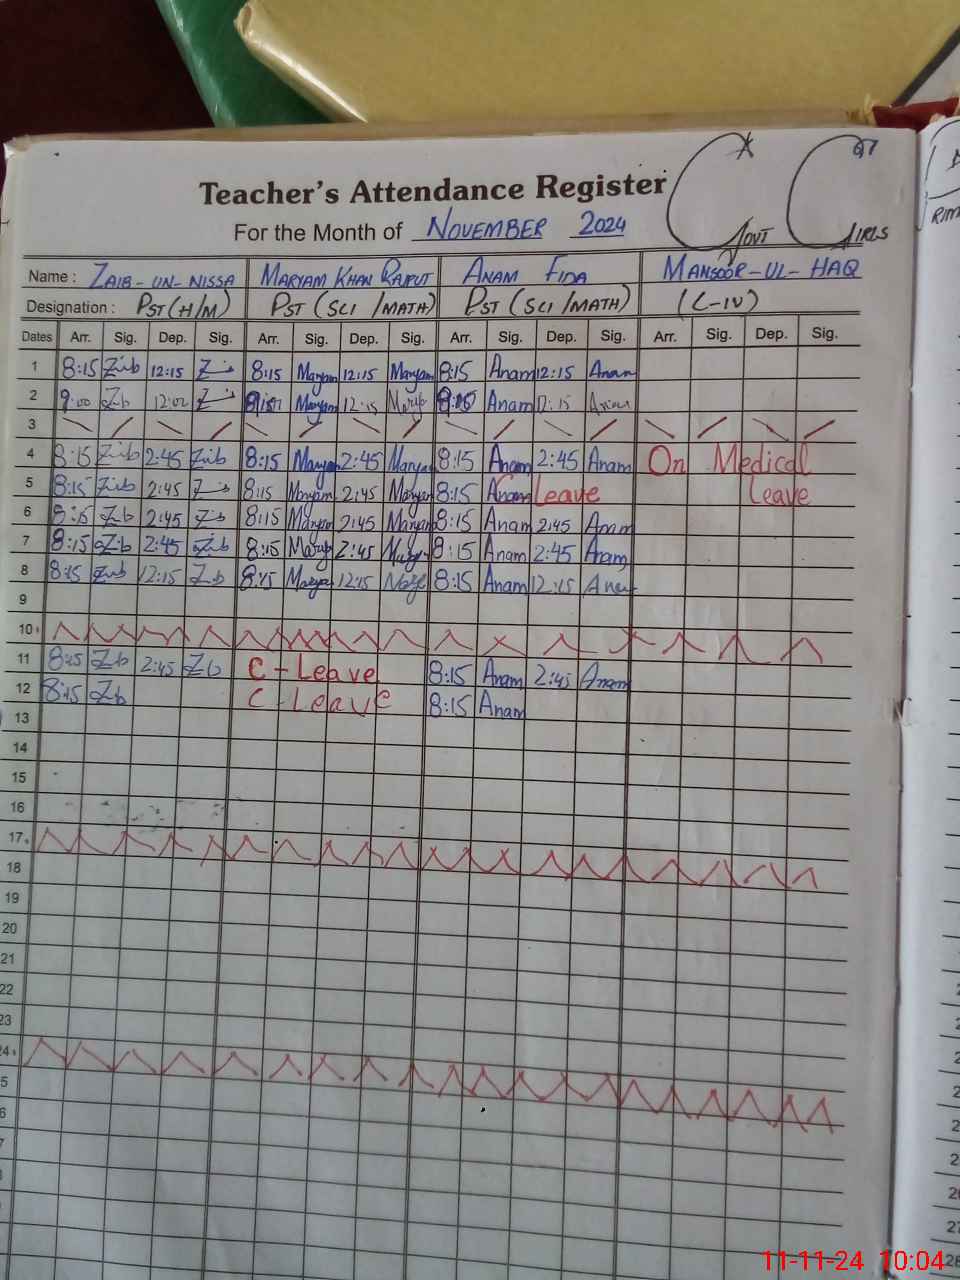 Teacher's Attendance Register
For the Month of NOVEMBER 2024
GOVT GIRLS
Name : ZAIB-UN-NISSA MARYAM KHAN RAJPUT ANAM FIDA MANSOOR-UL-HAQ
Designation : PST (H/M) PST (SCI/MATH) PST (SCI/MATH) (C-IV)
Dates Arr. Sig. Dep. Sig. Arr. Sig. Dep. Sig. Arr. Sig. Dep. Sig. Arr. Sig. Dep. Sig.
1 8:15 Zaib 12:15 8:15 Maryam 12:15 Maryam 8:15 Anam 12:15 Anam
2 9:00 Zb 12:02 Maryam 12:15 Anam 12:15 Anam
3
4 8:15 Zaib 2:45 Zaib 8:15 Maryam 2:45 Maryam 8:15 Anam 2:45 Anam On Medical
5 8:15 Zaib 2:45 8:15 Maryam 2:45 Maryam 8:15 Anam Leave Leave
6 8:15 Zb 2:45 Zb 8:15 Maryam 2:45 Maryam 8:15 Anam 2:45 Anam
7 8:15 Zb 2:45 Zaib 8:15 2:45 8:15 Anam 2:45 Anam
8 8:15 Zaib 12:15 Zb 8:15 12:15 8:15 Anam 12:15
9
10
11 8:15 Zb 2:45 Zb C-Leave 8:15 Anam 2:45 Anam
12 8:15 Zb C-Leave 8:15 Anam
13
14
15
16
17
18
19
20
21
22
23
11-11-24 10:04